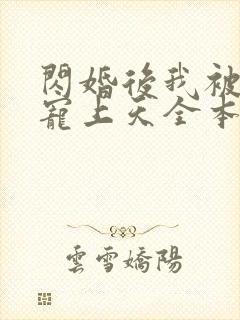 閃婚後我被
寵上天全本
雲雪嬌陽